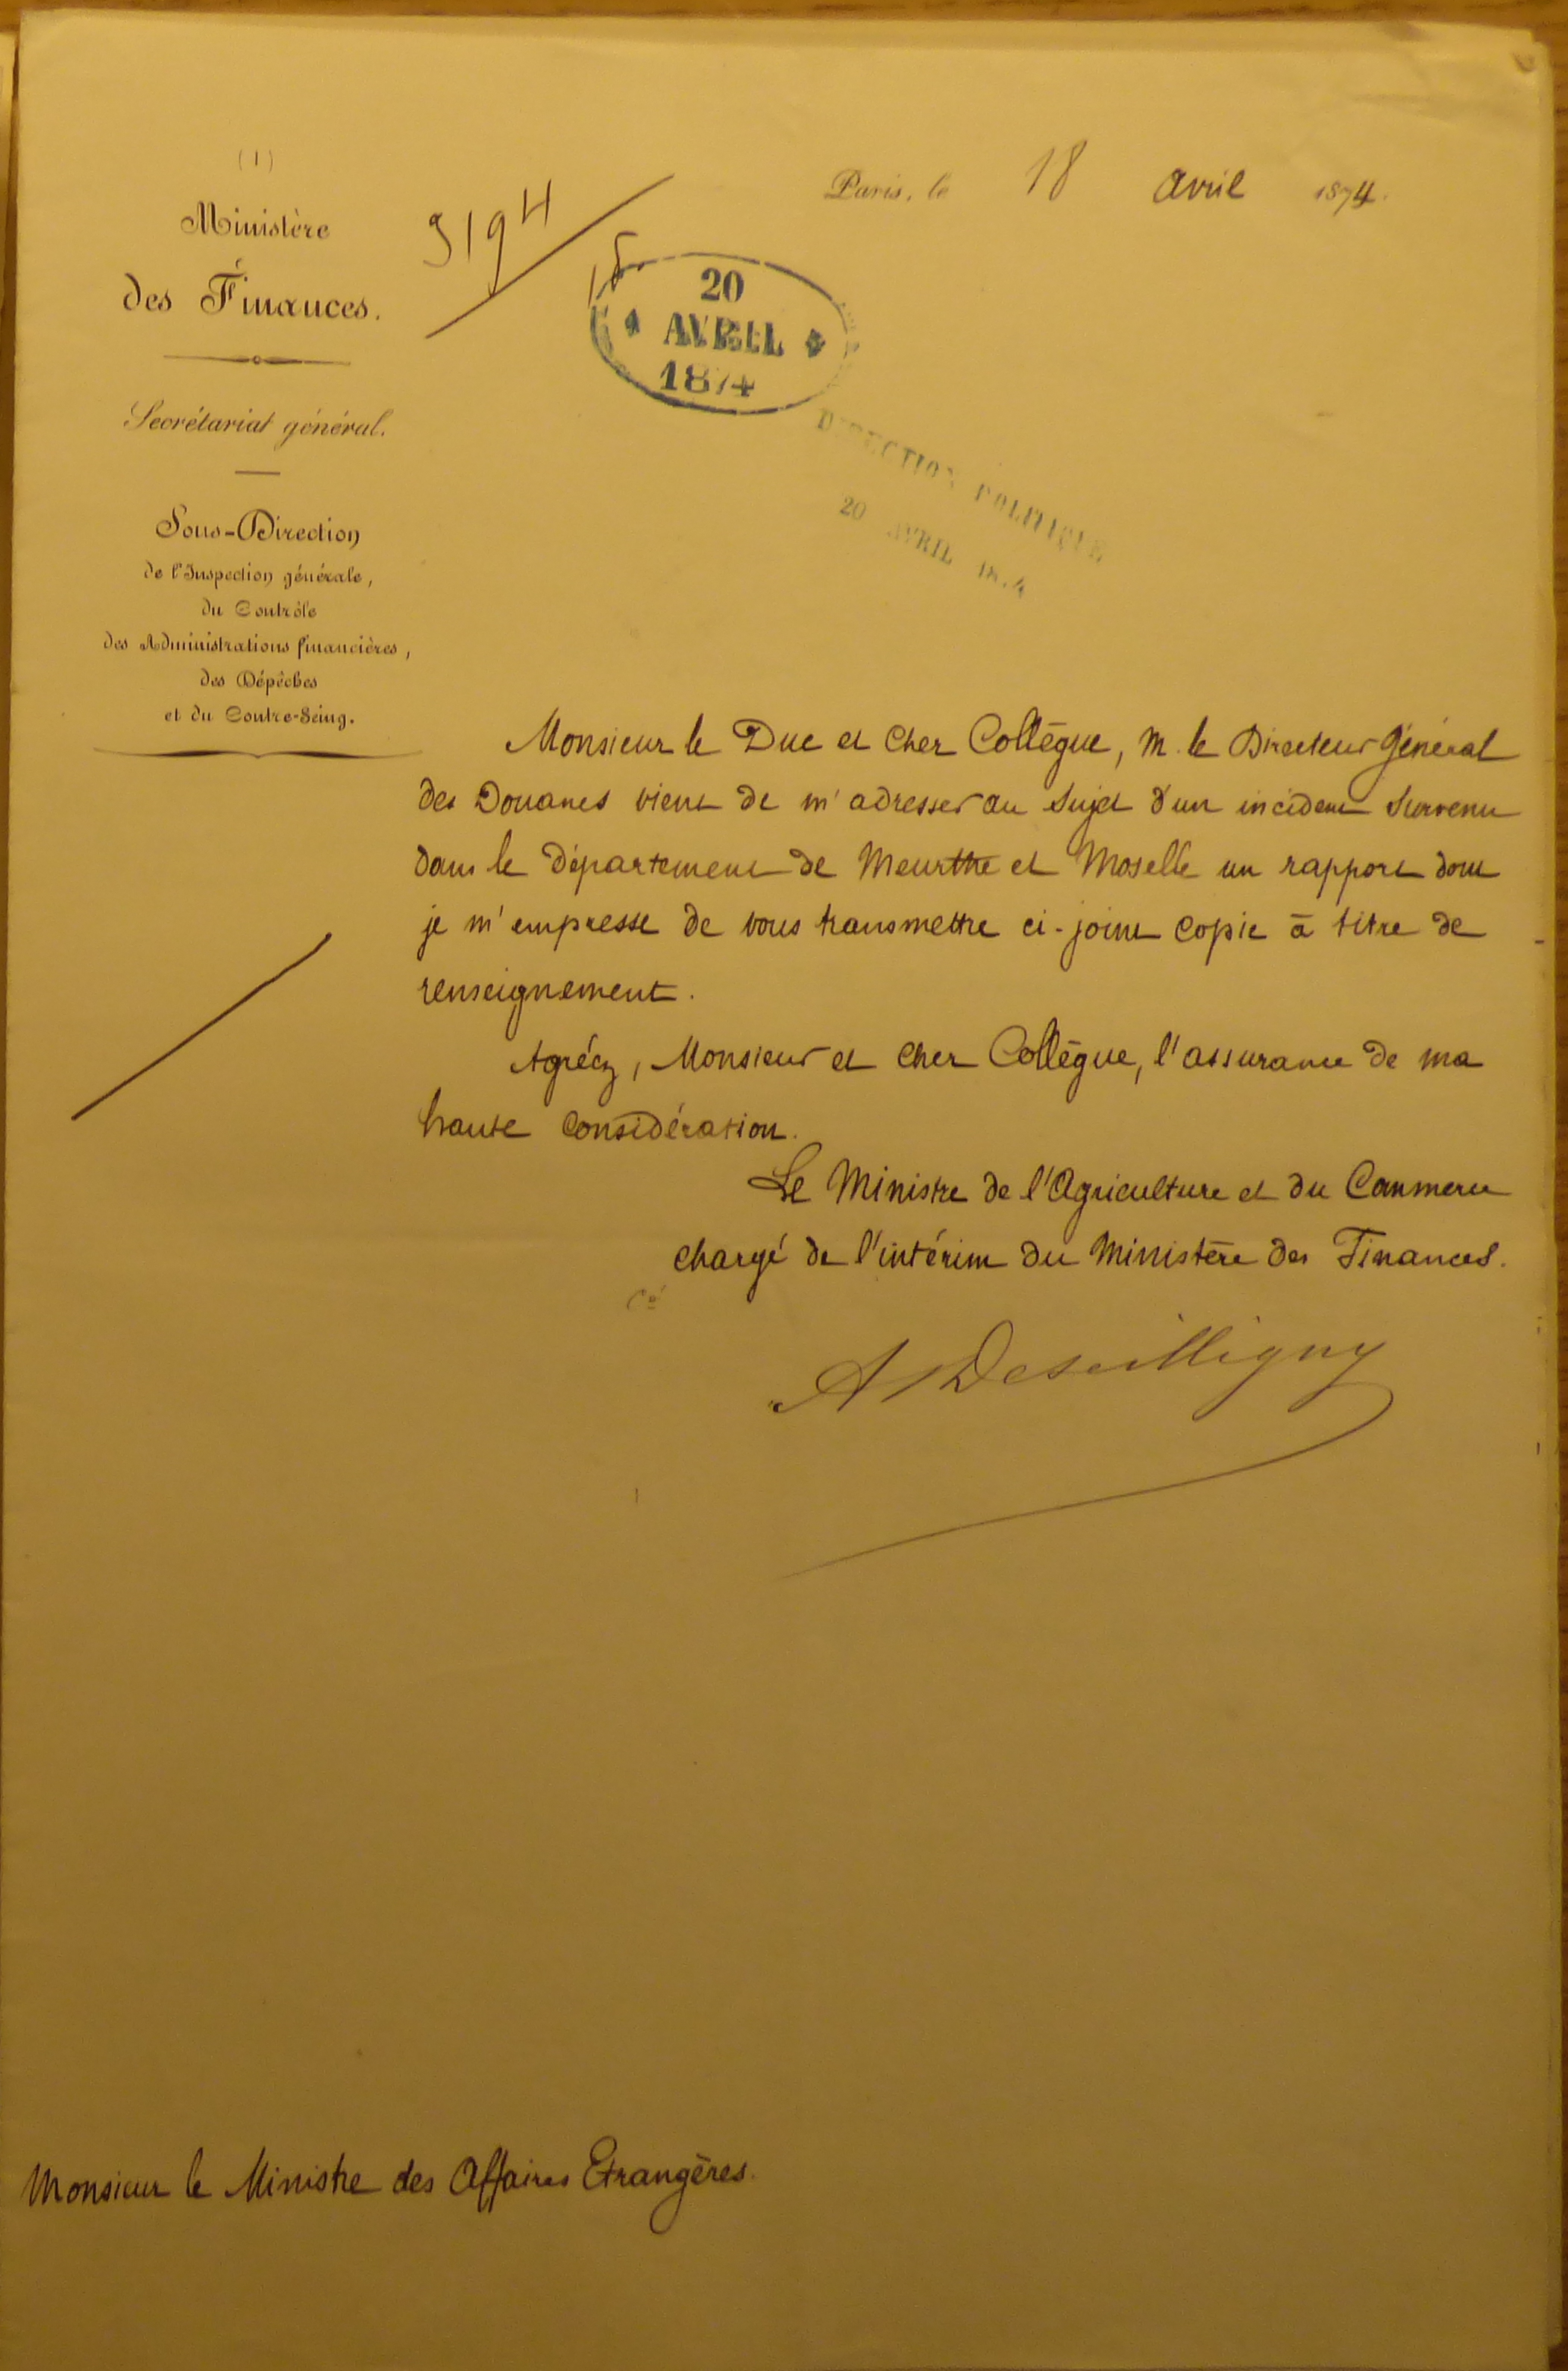 (1)
Ministère
des Finances.
Secrétariat général.
Sous-Direction
de l'Inspection générale,
du Contrôle
des Administrations financières,
des Dépêches
et du Contre-Seing.
Paris, le 18 avril 1874.
20
AVRIL
1874
DIRECTION POLITIQUE
20 AVRIL 1874
Monsieur le Duc et cher Collègue, M. le Directeur Général
des Douanes vient de m'adresser au sujet d'un incident survenu
dans le département de Meurthe et Moselle un rapport dont
je m'empresse de vous transmettre ci-joint copie à titre de
renseignement.
Agréez, Monsieur et cher Collègue, l'assurance de ma
haute considération.
Le Ministre de l'Agriculture et du Commerce
chargé de l'intérim du Ministère des Finances.
A Deseilligny
Monsieur le Ministre des Affaires Etrangères.